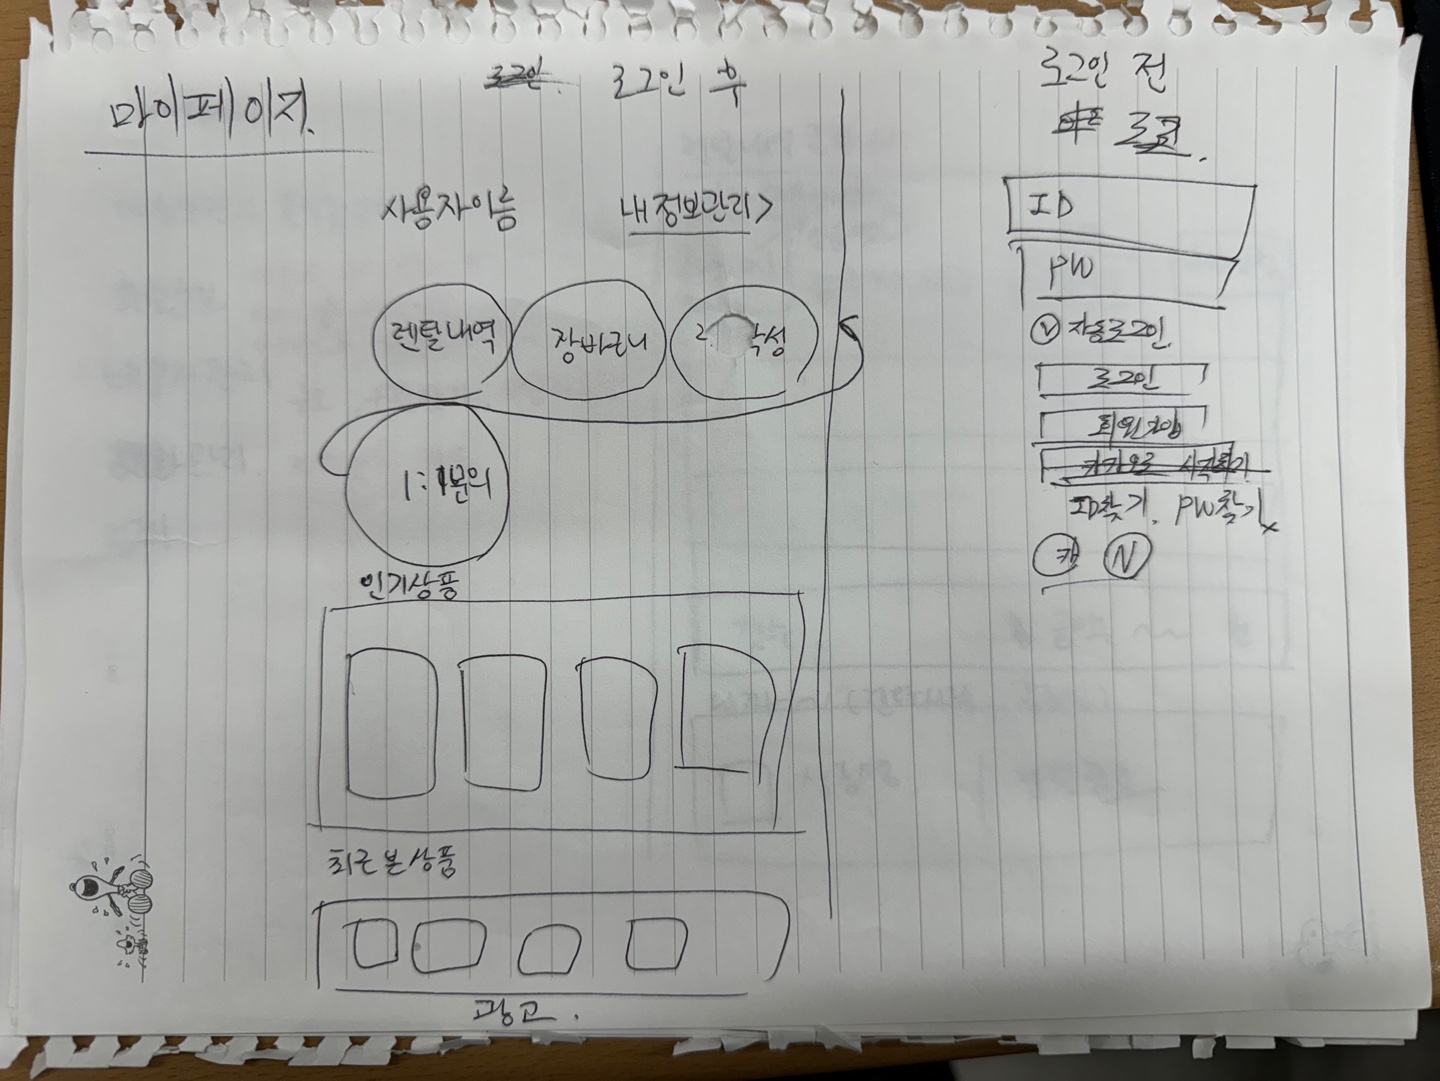 마이페이지.
로그인
로그인 후
사용자이름
내정보관리>
렌탈내역
장바구니
작성
1:1문의
인기상품
최근본상품
광고.
로그인 전
ID
PW
V 자동로그인
로그인
회원가입
카카오로 시작하기
ID찾기. PW찾기
카 N